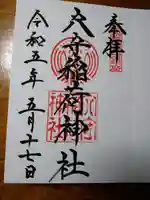 奉拝
穴守稲荷神社
令和五年 五月十七日